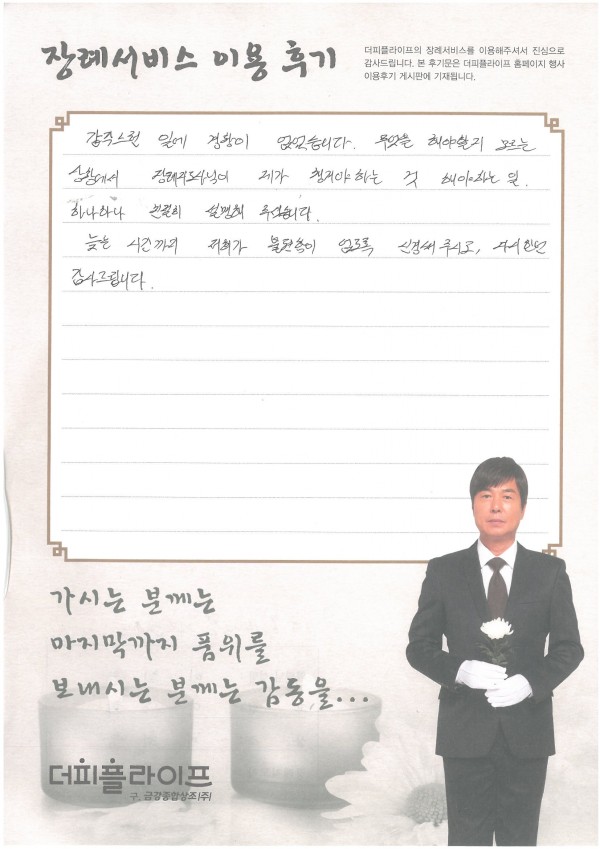 장례서비스 이용 후기
더피플라이프의 장례서비스를 이용해주셔서 진심으로
감사드립니다. 본 후기문은 더피플라이프 홈페이지 행사
이용후기 게시판에 기재됩니다.
갑작스런 일에 경황이 없었습니다. 무엇을 해야할지 모르는
상황에서 장례지도사님이 제가 챙겨야 하는 것 해야하는 일.
하나하나 친절히 설명해 주셨습니다.
늦은 시간까지 저희가 불편함이 없도록 신경써주시고, 다시한번
감사드립니다.
가시는 분께는
마지막까지 품위를
보내시는 분께는 감동을...
더피플라이프
구. 금강종합상조(주)